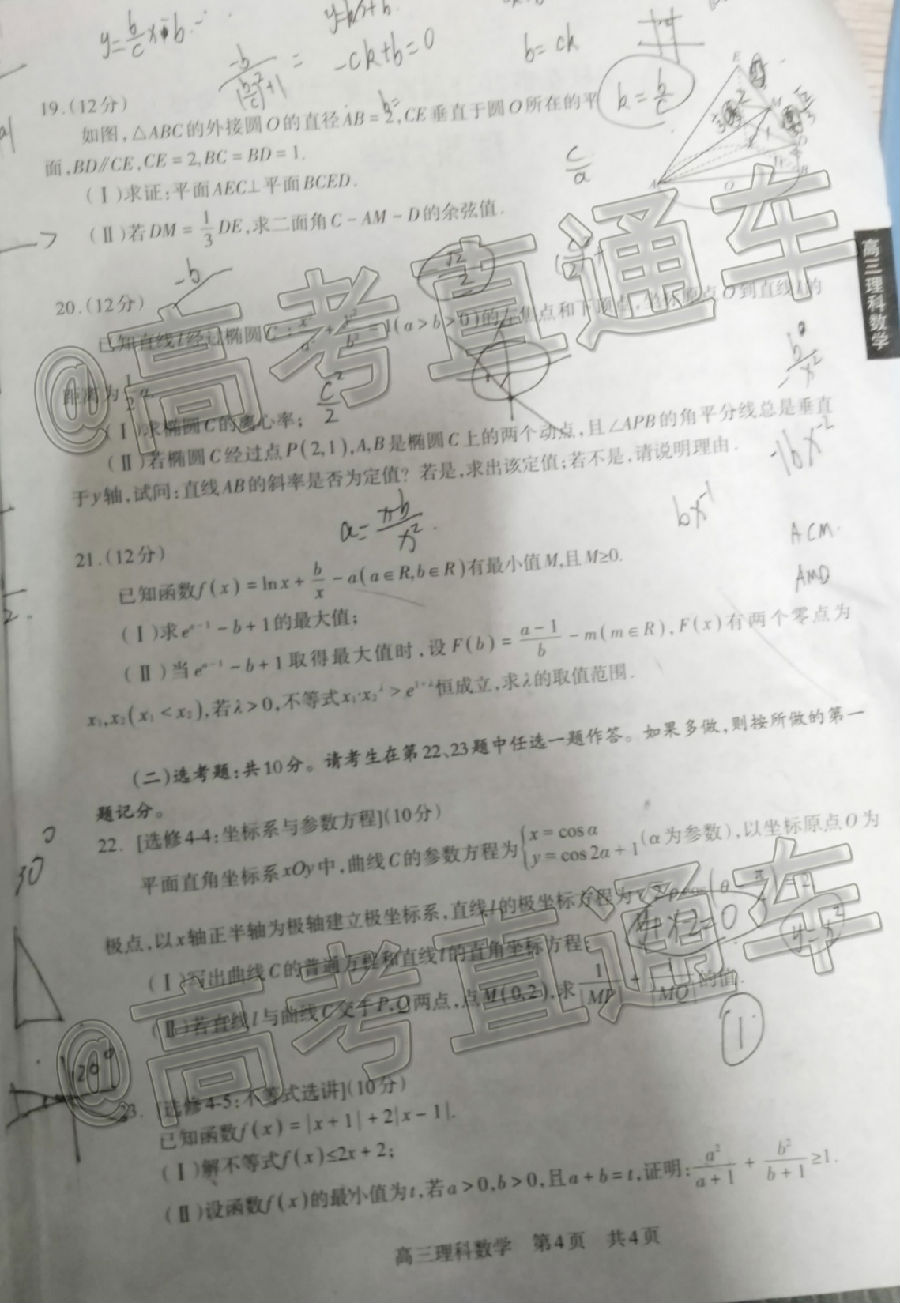 y=b/c x+b.
y=kx+b.
-ck+b=0
b=ck
k=b/c
19.(12分)
如图,△ABC的外接圆O的直径AB=2,CE垂直于圆O所在的平
面,BD∥CE,CE=2,BC=BD=1.
(Ⅰ)求证:平面AEC⊥平面BCED.
(Ⅱ)若DM=1/3DE,求二面角C-AM-D的余弦值.
c/a
-b
高三理科数学
20.(12分)
已知直线l经过椭圆C:x²/a²+y²/b²=1(a>b>0)的左焦点和下顶点,坐标原点O到直线l的
距离为1/2a.
(Ⅰ)求椭圆C的离心率;
(Ⅱ)若椭圆C经过点P(2,1),A,B是椭圆C上的两个动点,且∠APB的角平分线总是垂直
于y轴,试问:直线AB的斜率是否为定值?若是,求出该定值;若不是,请说明理由.
bx⁻¹
ACM.
AMD
21.(12分)
已知函数f(x)=lnx+b/x-a(a∈R,b∈R)有最小值M,且M≥0.
(Ⅰ)求eᵃ⁻¹-b+1的最大值;
(Ⅱ)当eᵃ⁻¹-b+1取得最大值时,设F(b)=a-1/b-m(m∈R),F(x)有两个零点为
x₁,x₂(x₁<x₂),若λ>0,不等式x₁·x₂^λ>e^(1+λ)恒成立,求λ的取值范围.
(二)选考题:共10分。请考生在第22、23题中任选一题作答。如果多做,则按所做的第一
题记分。
22.[选修4-4:坐标系与参数方程](10分)
平面直角坐标系xOy中,曲线C的参数方程为{x=cosα y=cos2α+1(α为参数),以坐标原点O为
极点,以x轴正半轴为极轴建立极坐标系,直线l的极坐标方程为
(Ⅰ)写出曲线C的普通方程和直线l的直角坐标方程;
(Ⅱ)若直线l与曲线C交于P,Q两点,点M(0,2),求1/|MP|+1/|MQ|的值.
30°
120°
1
23.[选修4-5:不等式选讲](10分)
已知函数f(x)=|x+1|+2|x-1|.
(Ⅰ)解不等式f(x)≤2x+2;
(Ⅱ)设函数f(x)的最小值为t,若a>0,b>0,且a+b=t,证明:a²/a+1+b²/b+1≥1.
高三理科数学 第4页 共4页
@高考直通车
@高考直通车